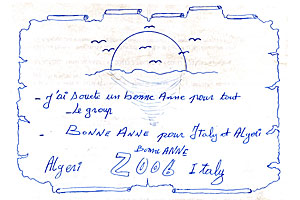 - j'ai Soute un bonne Anne pour tout
- le group
- BONNE ANNE pour Italy et Algeri
BONNE ANNE
Algeri 2006 Italy